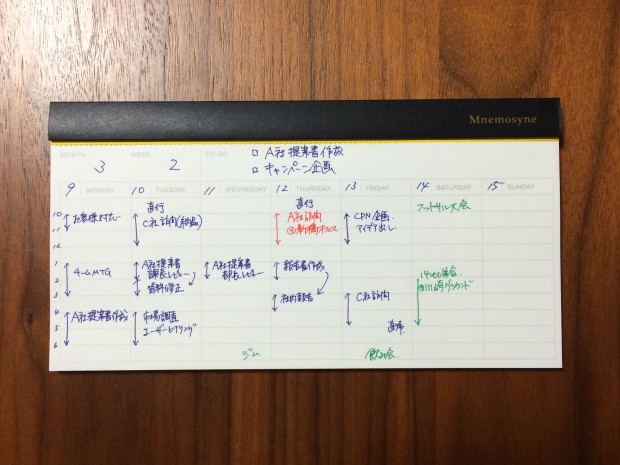 Mnemosyne
MONTH 3 WEEK 2 TO-DO □ A社提案書作成
□ キャンペーン企画
9 MONDAY 10 TUESDAY 11 WEDNESDAY 12 THURSDAY 13 FRIDAY 14 SATURDAY 15 SUNDAY
10
11
12
1
2
3
4
5
6
お客様対応
チームMTG
A社提案書作成
直行
C社訪問
A社提案書
課長レビュー
資料修正
市場調査
ユーザーヒアリング
A社提案書
部長レビュー
ジム
直行
A社訪問
@新橋オフィス
報告書作成
社内報告
CPN企画
アイデア出し
C社訪問
直帰
飲み会
フットサル大会
14:00集合
@川崎グラウンド